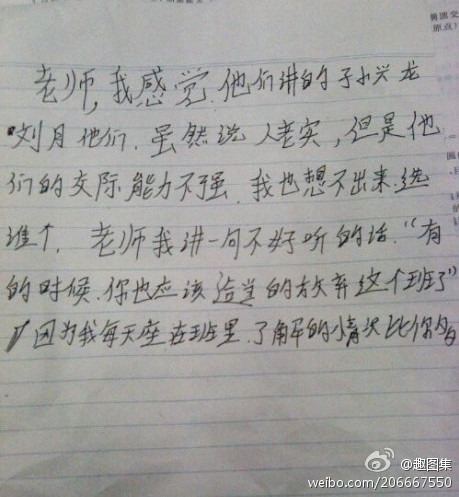 老师,我感觉.他们讲的子小兴龙
刘月他们.虽然说人老实,但是他
们的交际能力不强.我也想不出来.选
谁个.老师我讲一句不好听的话.“有
的时候.你也应该适当的放弃这个班了”
因为我每天座在班里.了解的情况比你多
@趣图集
weibo.com/206667550